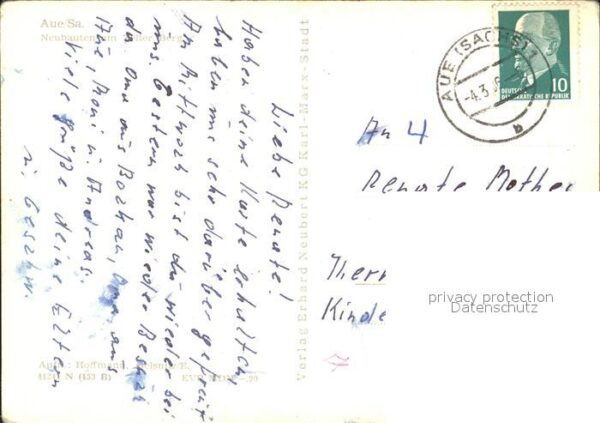 Aue/Sa.
Neubauten am Zeller Berg
Liebe Renate!
Haben deine Karte erhalten,
haben uns sehr darüber gefreut
Am Mittwoch bist du wieder bei
uns. Gestern war wieder Besuch
da Oma aus Bockau, Oma aus
Aue, Moni u. Andreas.
Viele Grüße deine Eltern
u. Geschw.
Aufn.: Hoffmann,
Verlag Erhard Neubert KG Karl-Marx-Stadt
AUE (SACHS) 1
-4.3.
b
DEUTSCHE
DEMOKRATISCHE REPUBLIK
10
An 4
Renate
Kinde
privacy protection
Datenschutz
7